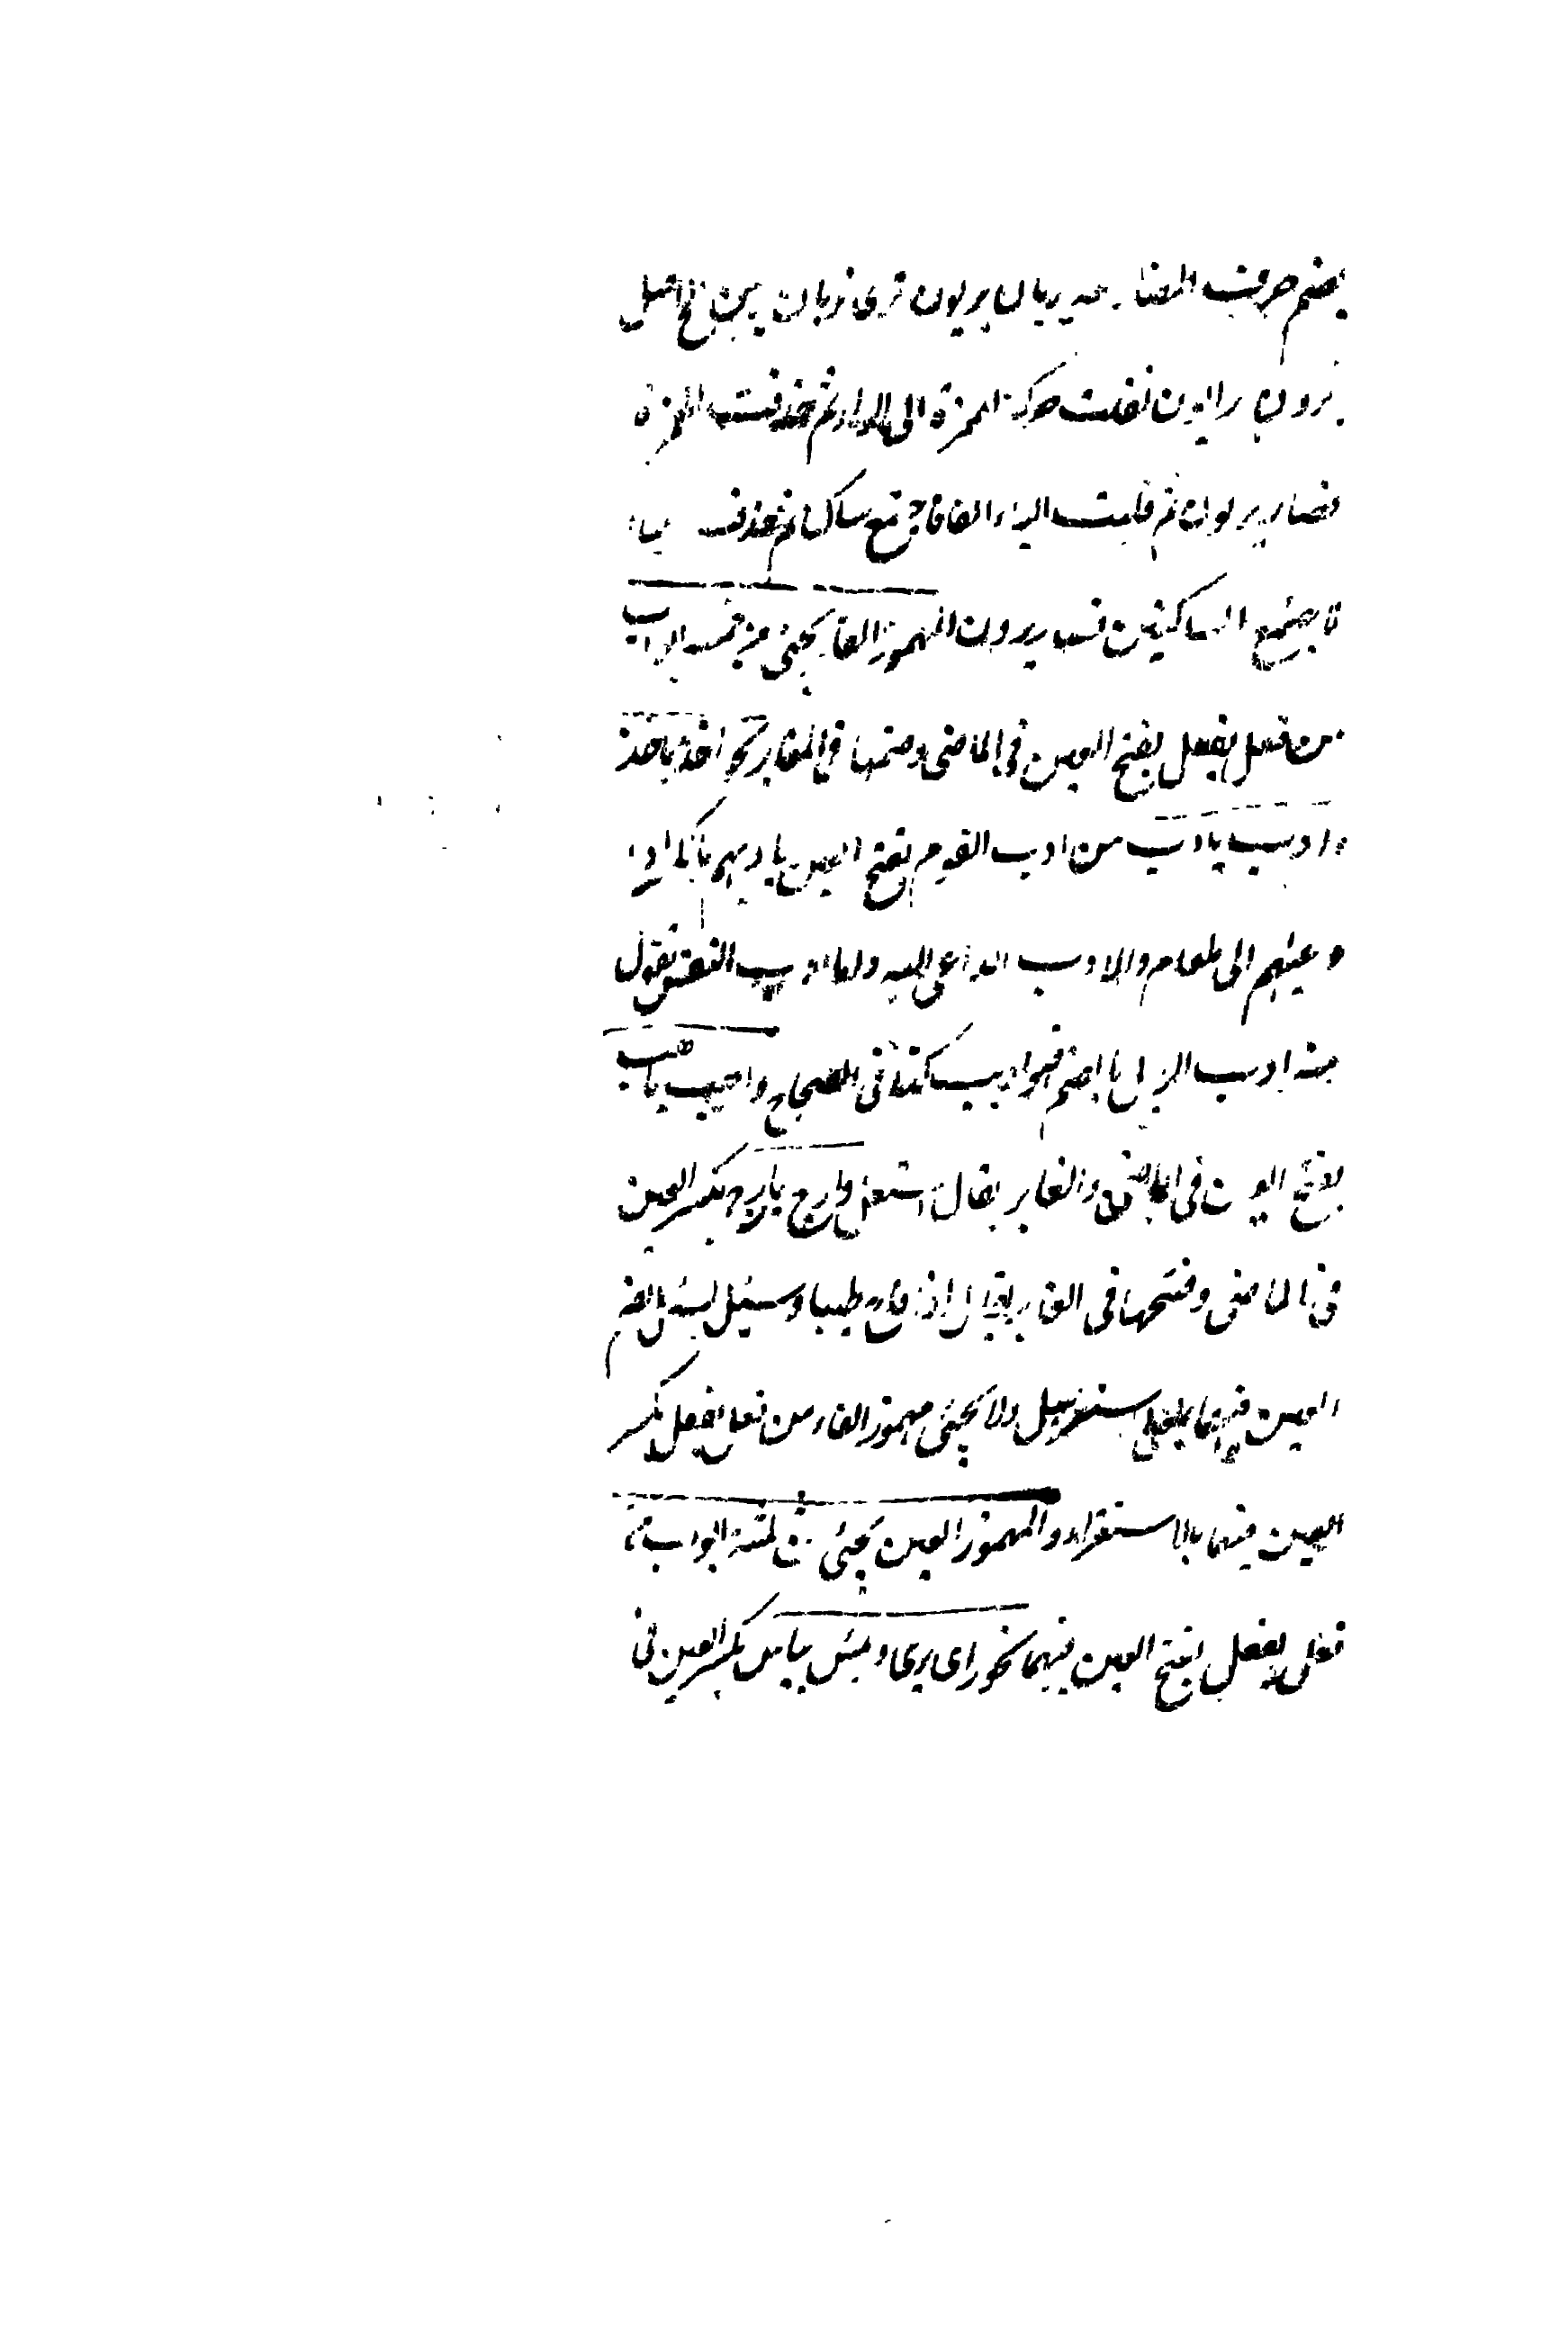 بضم حرف المضارعة يريان يريون ترى تريان يرين الخ اصل
يرون يرايون نقلت حركة الهمزة الى الراء ثم حذفت الهمزة
فصار يريون ثم قلبت الياء الفا فاجتمع ساكنان ثم حذف
لاجتماع الساكنين فصار يرون المهموز الفاء يجئ من خمسة ابواب
من فعل يفعل بفتح العين فى الماضى وضمها فى الغابر نحو اخذ ياخذ
وادب يادب من ادب القوم بفتح العين يادبهم بالكسر اذا
دعيتهم الى طعام والادب الداعى اليه واما ادب النفس تقول
منه ادب الرجل بالضم فهو اديب كذا فى الصحاح واهب ياهب
بفتح العين فى الماضى والغابر يقال استعد وارج يارج بكسر العين
فى الماضى وفتحها فى الغابر يقال اذا فاح طيبا وسئل يسئل بضم
العين فيهما ولا يجئ مهموز الفاء من فعل يفعل بكسر
العين فيهما بالاستقراء والمهموز العين يجئ من ثلثة ابواب
فعل يفعل بفتح العين فيهما نحو راى يرى ويئس ييأس بكسر العين فى